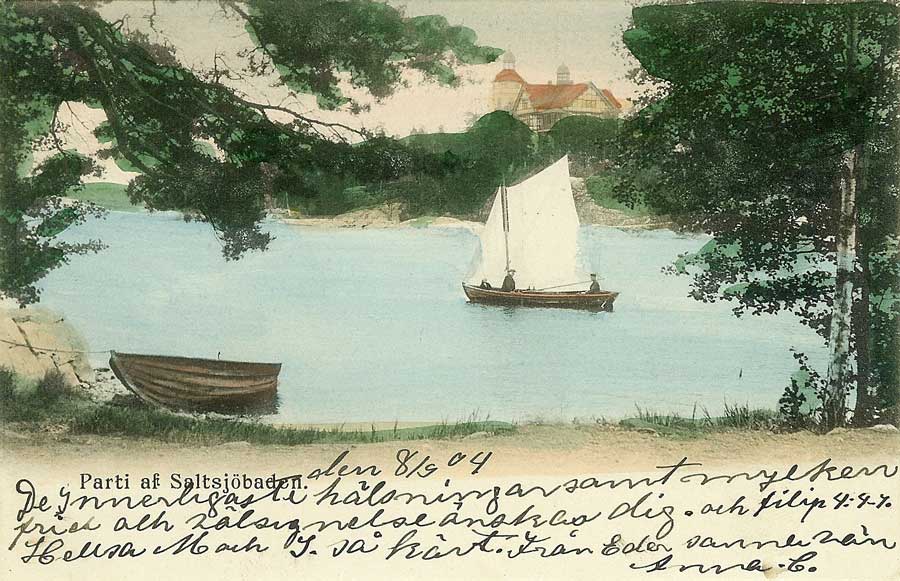 Parti af Saltsjöbaden.
den 8/9 04
De Innerligaste hälsningar samt mycken
frid och välsignelse önskas dig. och filip 4:4-7.
Helsa M och J. så kärt. Från Eder sanne vän
Anna-C.